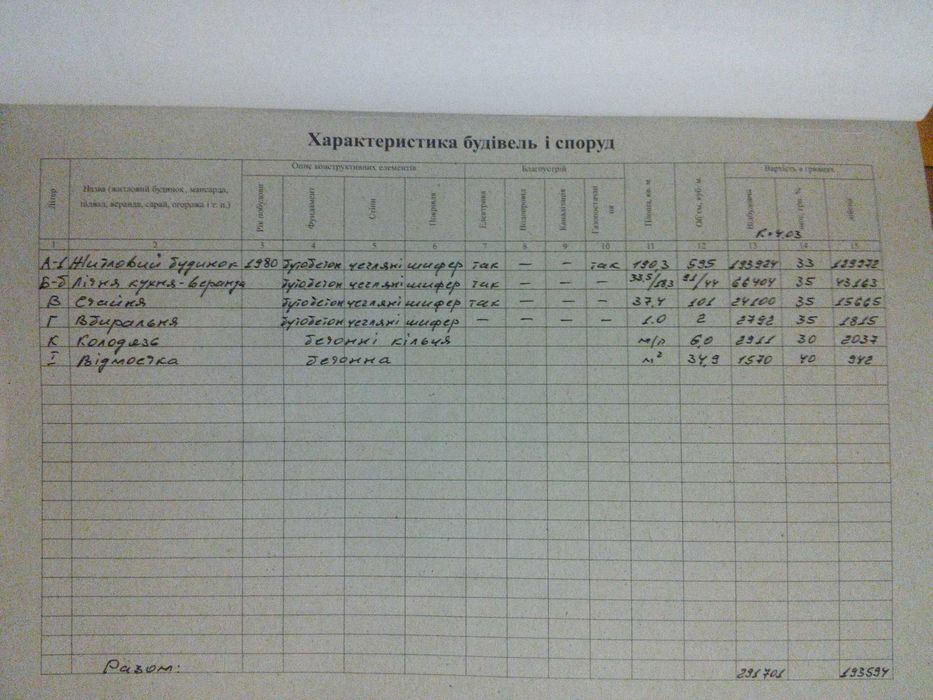 Характеристика будівель і споруд
Літер Назва (житловий будинок, мансарда, підвал, веранда, сарай, огорожа і т. п.) Рік побудови Опис конструктивних елементів Благоустрій Площа, кв. м Об'єм, куб. м Вартість в гривнях
Фундамент Стіни Покрівля Електрика Водопровід Каналізація Газопостачання Відбудовна знос, грн. % дійсна
К=4.03
1 2 3 4 5 6 7 8 9 10 11 12 13 14 15
А-1 Житловий будинок 1980 бутобетон цегляні шифер так — — так 190,3 595 193924 33 129972
Б-б Літня кухня-веранда бутобетон цегляні шифер так — — — 33,5/18,3 91/44 66404 35 43163
В Стайня бутобетон цегляні шифер так — — — 37,4 101 24100 35 15665
Г Вбиральня бутобетон цегляні шифер — — — — 1.0 2 2792 35 1815
К Колодязь бетонні кільця м/п 6,0 2911 30 2037
I Відмостка бетонна м² 34,9 1570 40 942
Разом: 291701 193594